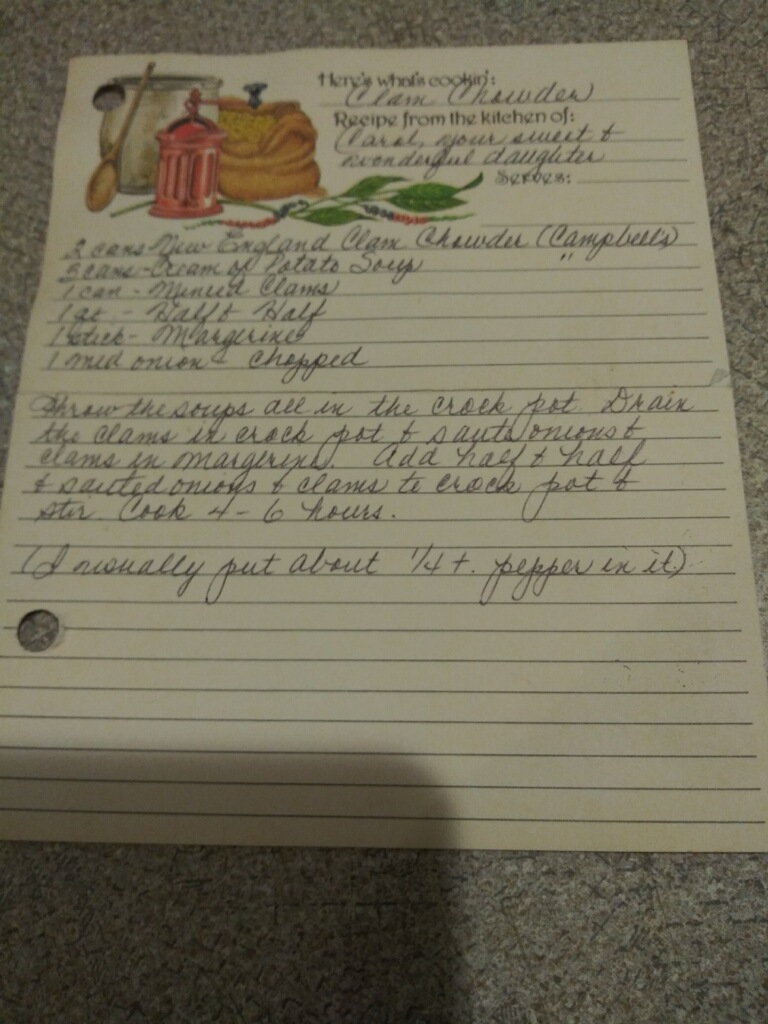 Here's what's cookin':
Clam Chowder
Recipe from the kitchen of:
Carol, your sweet &
wonderful daughter
Serves:
2 cans New England Clam Chowder (Campbell's)
3 cans - Cream of Potato Soup "
1 can - Minced Clams
1 qt. - Half & Half
1 stick - Margerine
1 med onion - chopped
Throw the soups all in the crock pot. Drain
the clams in crock pot & saute onions &
clams in margerine. Add half & half
& sauted onions & clams to crock pot &
stir. Cook 4 - 6 hours.
(I usually put about 1/4 t. pepper in it)